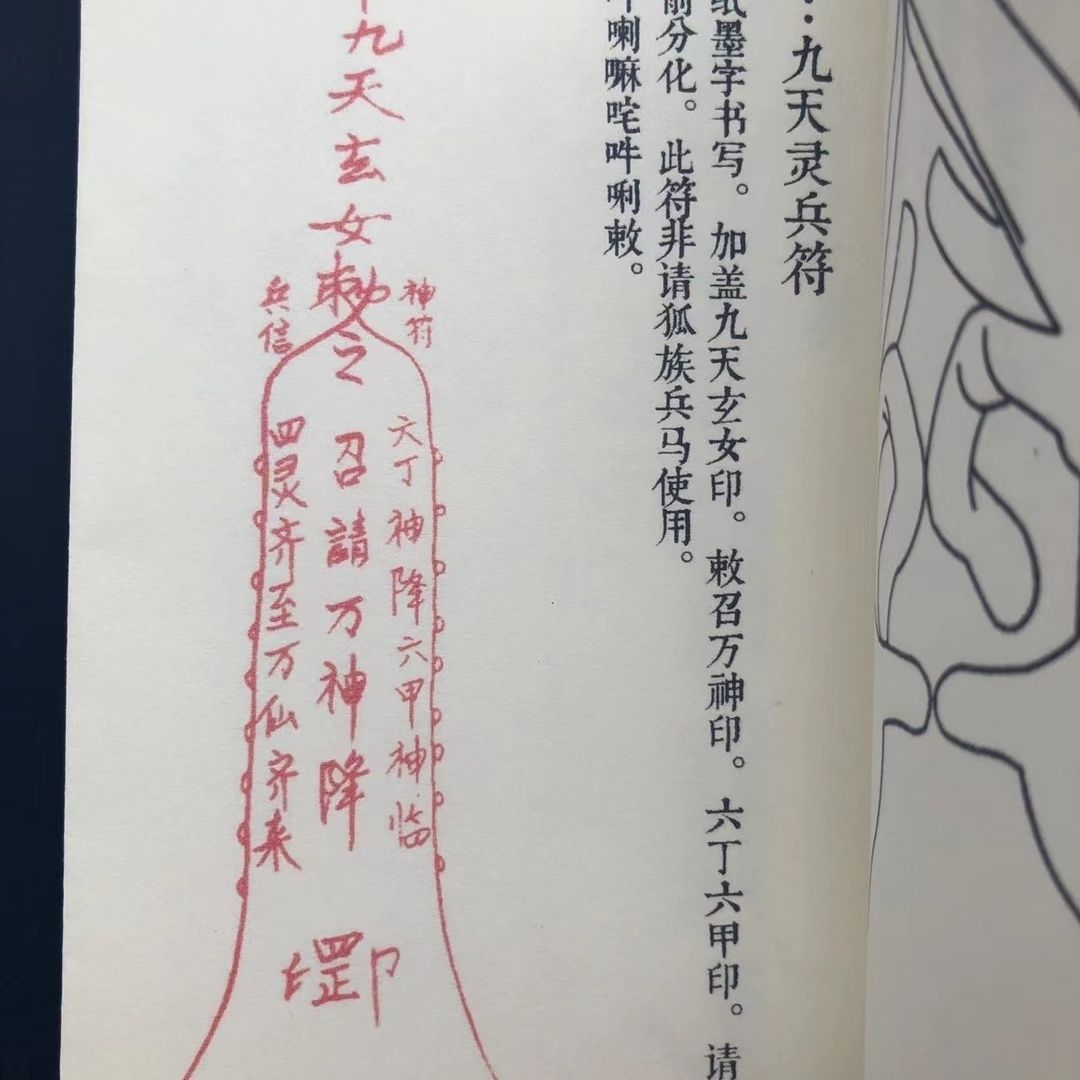 ：九天灵兵符
纸墨字书写。加盖九天玄女印。敕召万神印。六丁六甲印。请
前分化。此符非请狐族兵马使用。
喇嘛咤吽唎敕。
九天玄女勅令召請万神降
神符
兵信
六丁神降六甲神临
四灵齐至万仙齐来
罡